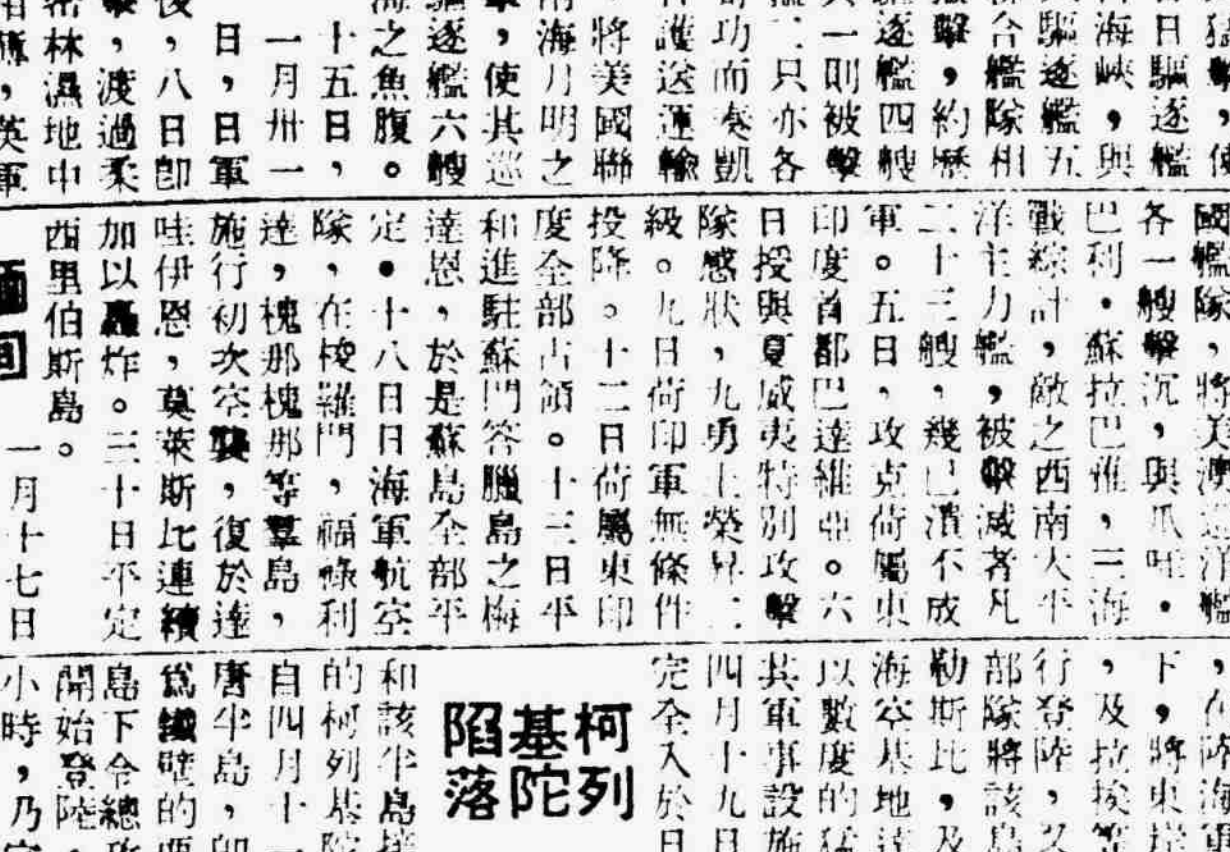 猛擊，使
日驅逐艦
海峽，與
驅逐艦五
合艦隊
擊，約歷
逐艦四艘
一則被擊
二只亦各
功而奏凱
護送運輸
將美國聯
海月明之
，使其巡
驅逐艦六艘
海之魚腹。
十五日，
一月卅一
日，日軍
後，八日卽
，渡過柔
密林濕地中
，英軍
國艦隊，將美澳
各一艘擊沉，與爪哇．
巴利．蘇拉巴雅，三海
戰綜計，敵之西南太平
洋主力艦，被擊滅者凡
二十三艘，幾已潰不成
軍。五日，攻克荷屬東
印度首都巴達維亞。六
日授與夏威夷特別攻擊
隊感狀，九勇士榮昇二
級。九日荷印軍無條件
投降。十二日荷屬東印
度全部占領。十三日平
和進駐蘇門答臘島之梅
達恩，於是蘇島全部平
定．十八日日海軍航空
隊，在梭羅門，福祿利
達，槐那槐那等羣島，
施行初次空襲，復於達
哇伊恩，莫萊斯比連續
加以轟炸。三十日平定
西里伯斯島。
緬甸
一月十七日
，在陸海軍
下，將東岸
，及拉挨等
行登陸，又
部隊將該島
勒斯比，及
海空基地達
以數度的猛
其軍事設施
四月十九日
完全入於日
柯列
基陀
陷落
和該半島接
的柯列基陀
自四月十一
唐半島，卽
爲鐵壁的要
島下令總攻
開始登陸，
小時，乃完